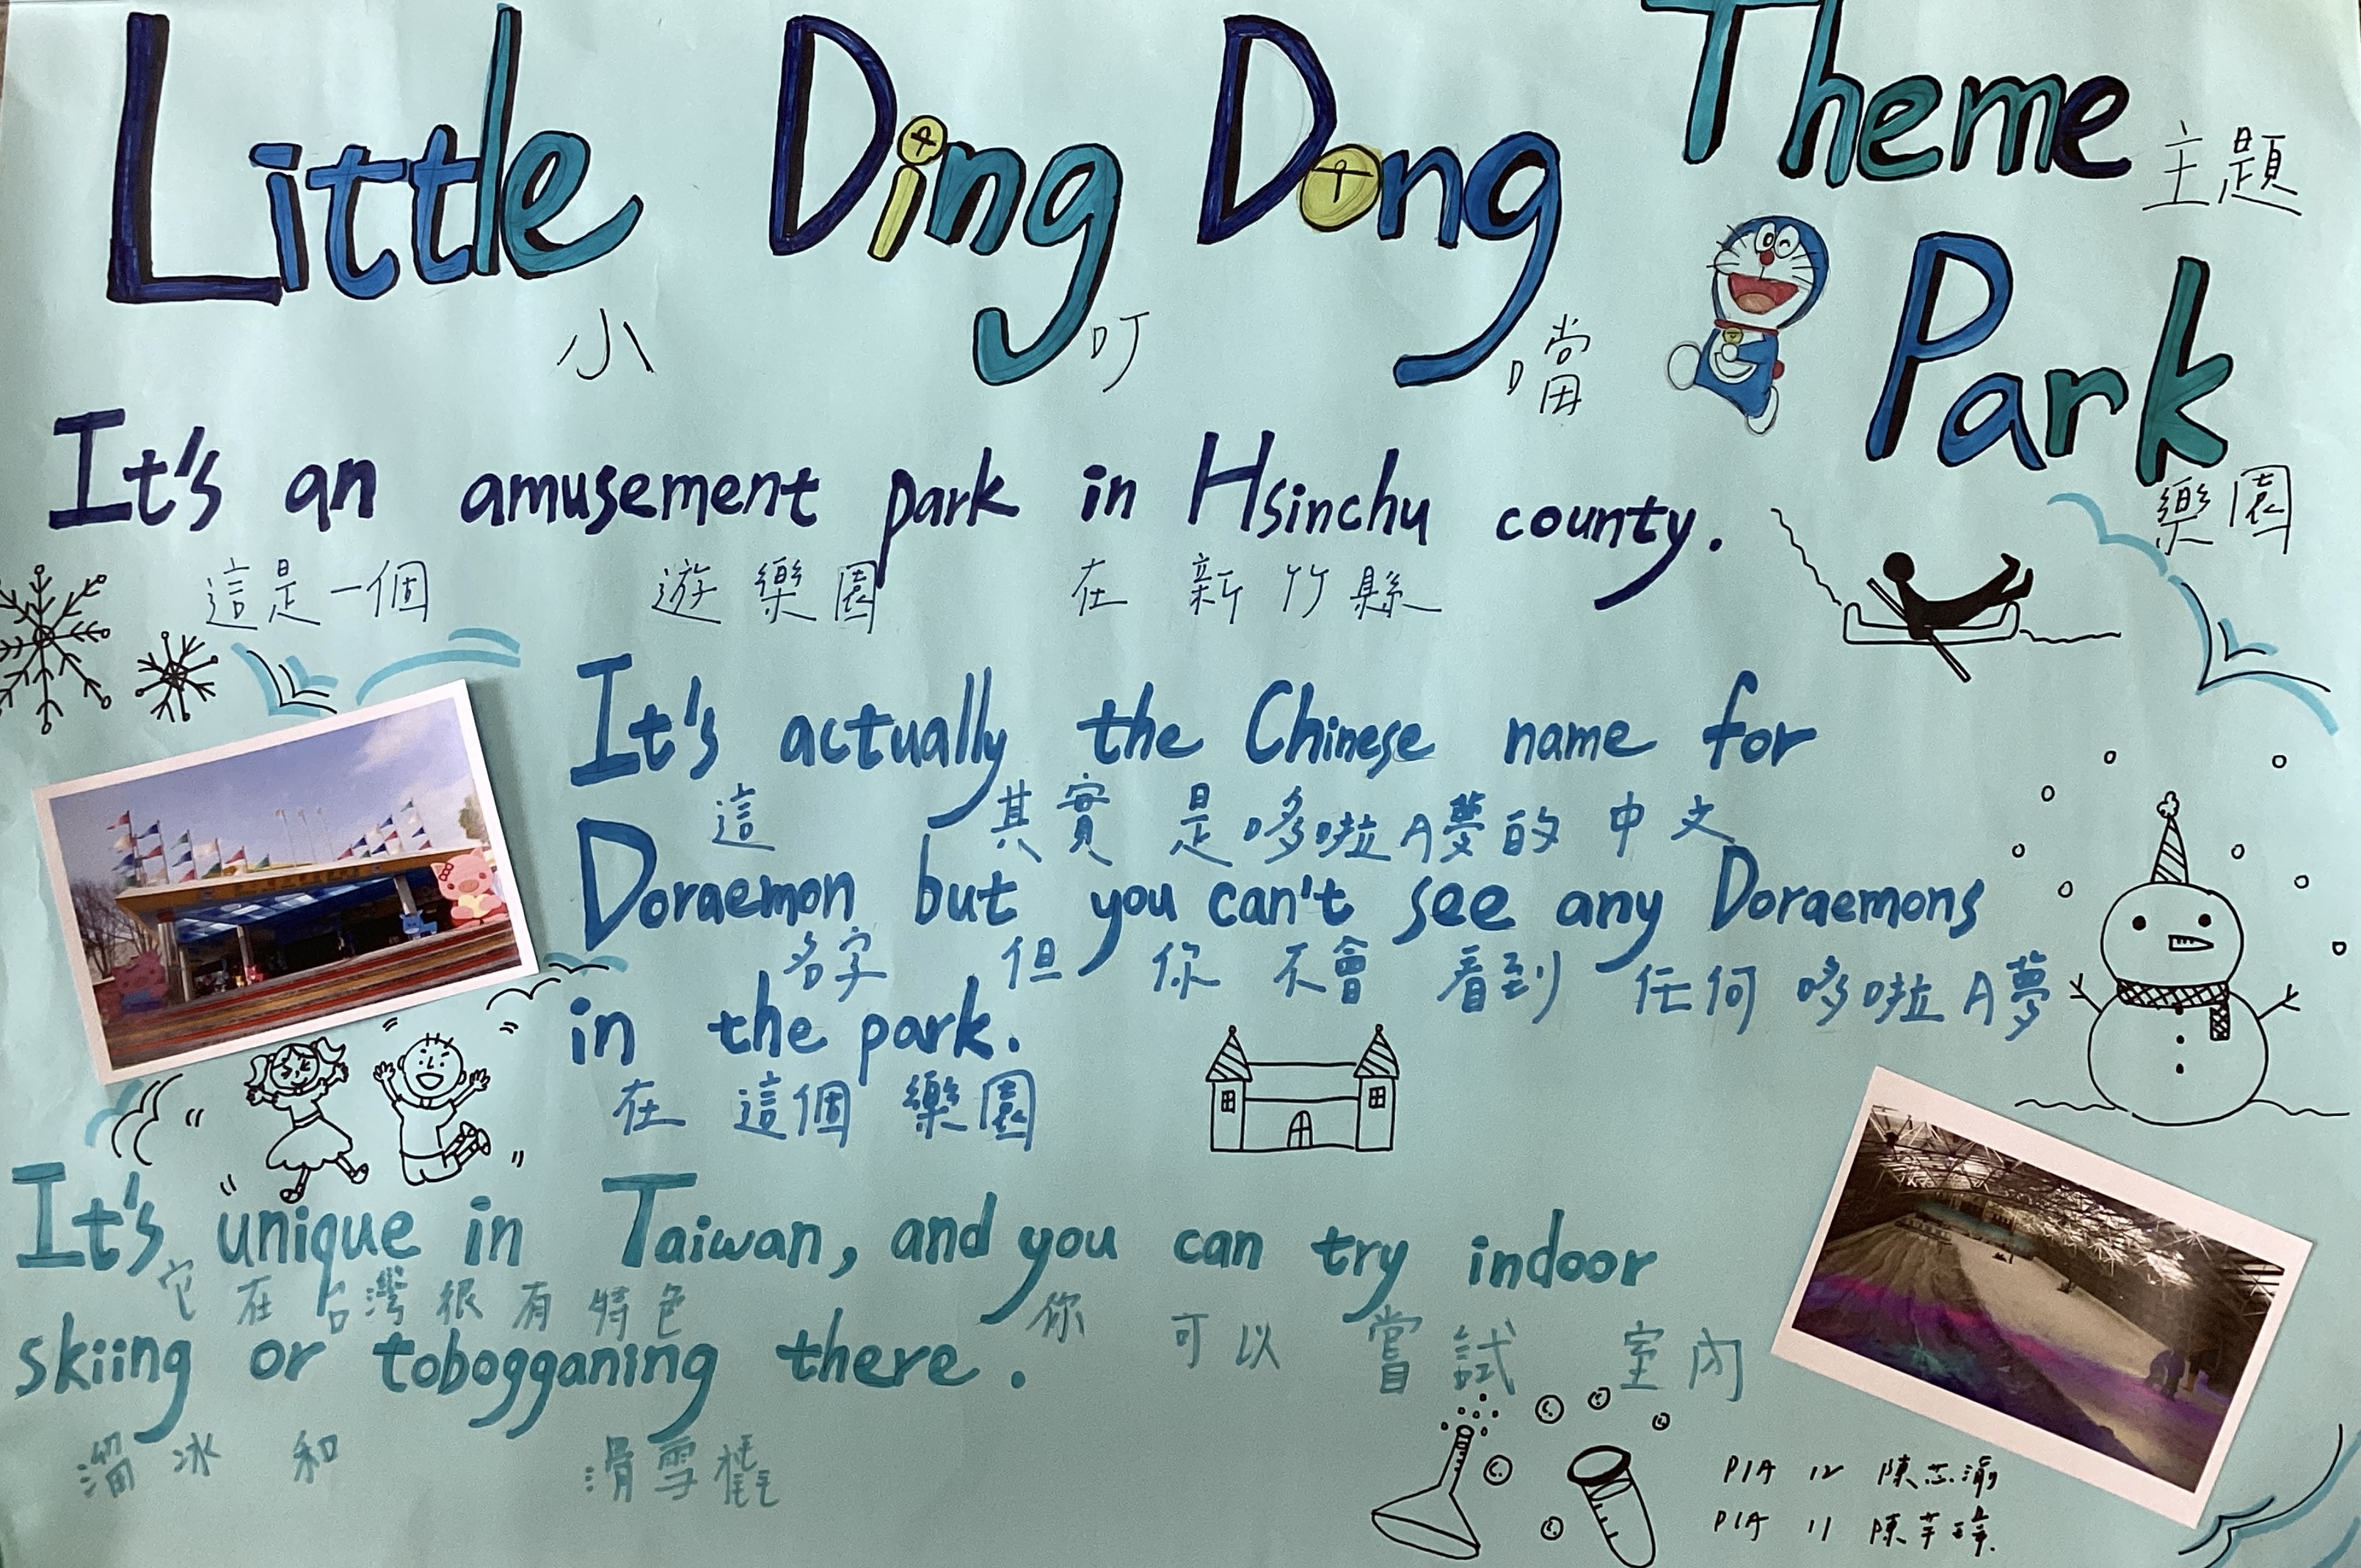 Little Ding Dong Theme
主題
小 叮 噹
Park
樂園
It's an amusement park in Hsinchu county.
這是一個 遊樂園 在 新竹縣
It's actually the Chinese name for
這 其實 是哆啦A夢的 中文
Doraemon but you can't see any Doraemons
名字 但 你 不會 看到 任何 哆啦A夢
in the park.
在 這個 樂園
It's unique in Taiwan, and you can try indoor
它在台灣很有特色 你 可以 嘗試 室內
skiing or tobogganing there.
溜冰 和 滑雪橇
P1A 12 陳芯渝
P1A 11 陳芊瑋